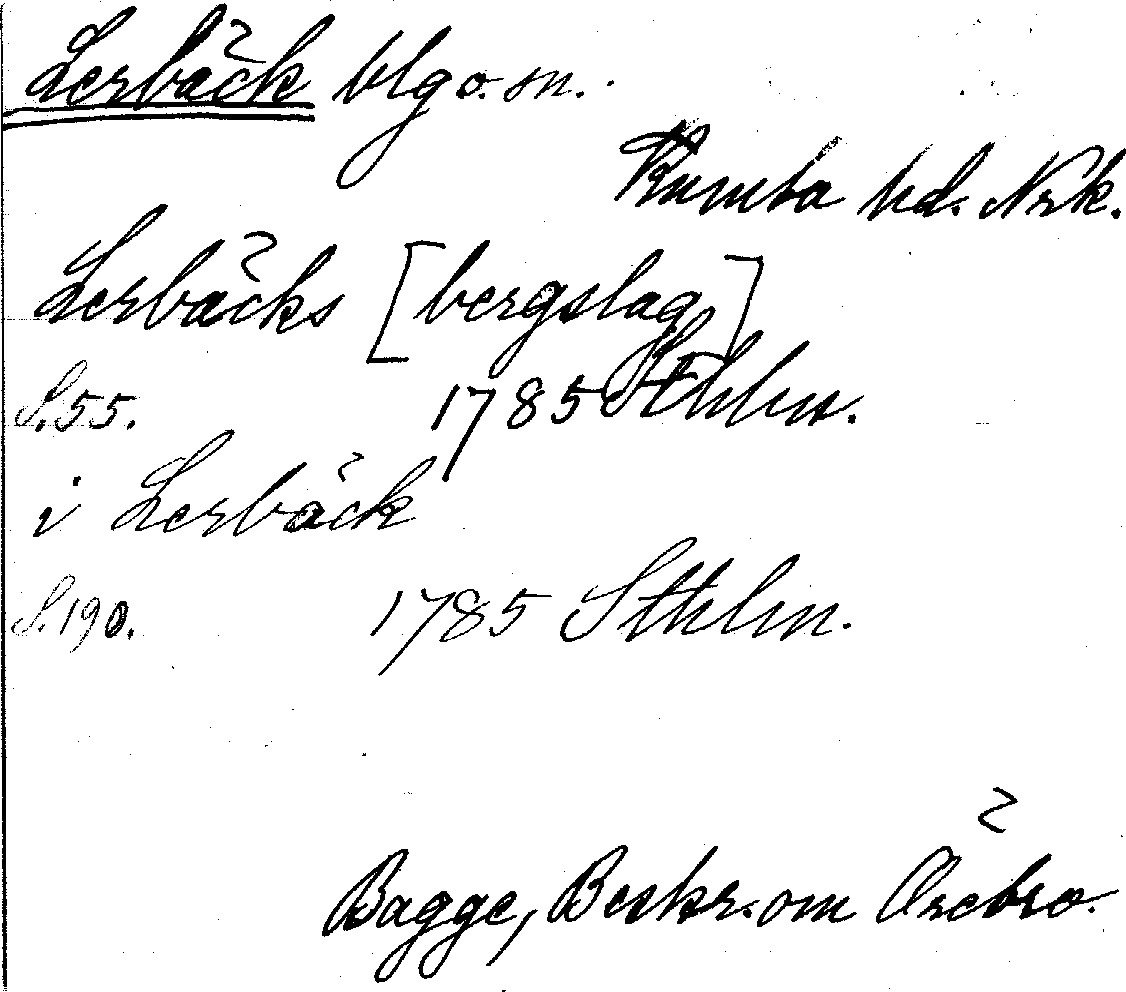 Lerbäck blg o. sn.
Kumla hd. Nrk.
Lerbäcks [bergslag]
S. 55. 1785 Sthlm.
i Lerbäck
S. 190. 1785 Sthlm.
Bagge, Beskr. om Örebro.